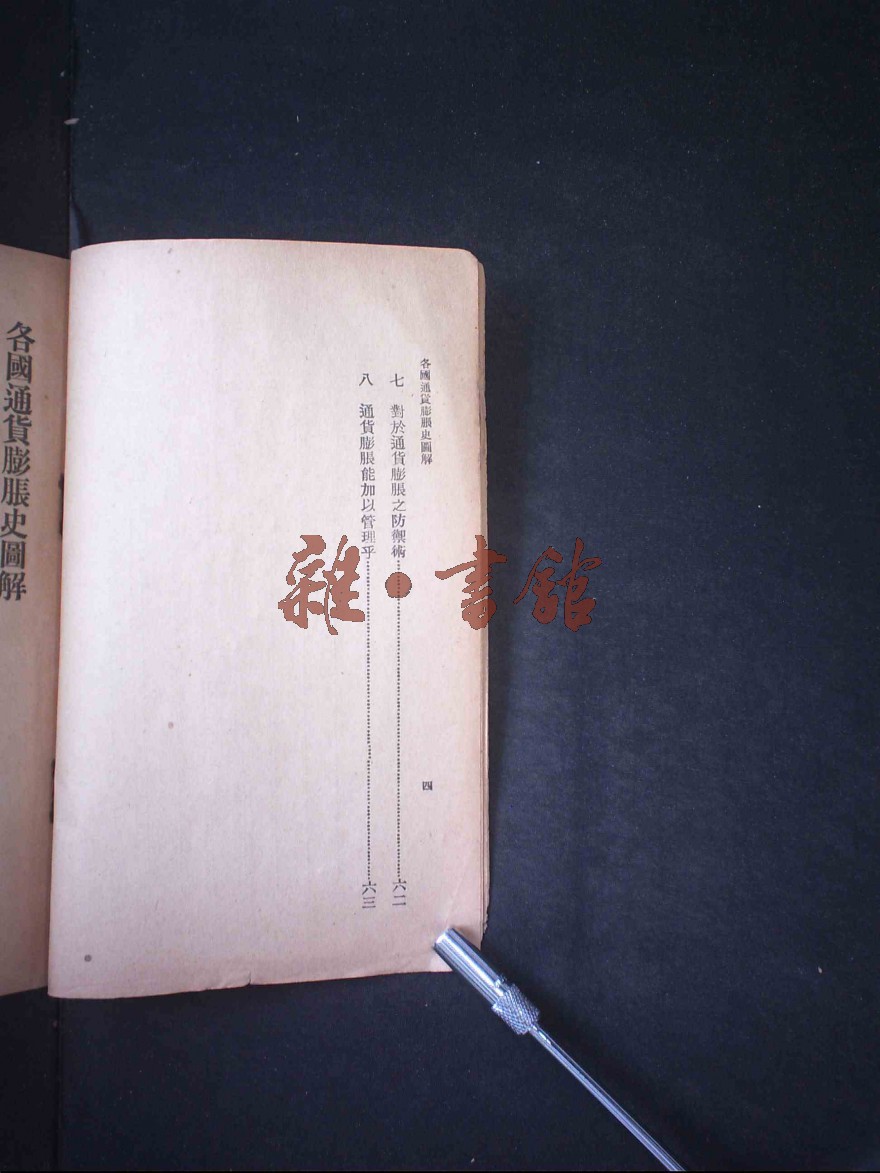 各國通貨膨脹史圖解
四
七 對於通貨膨脹之防禦術…………六二
八 通貨膨脹能加以管理乎…………六三
各國通貨膨脹史圖解
雜•書館